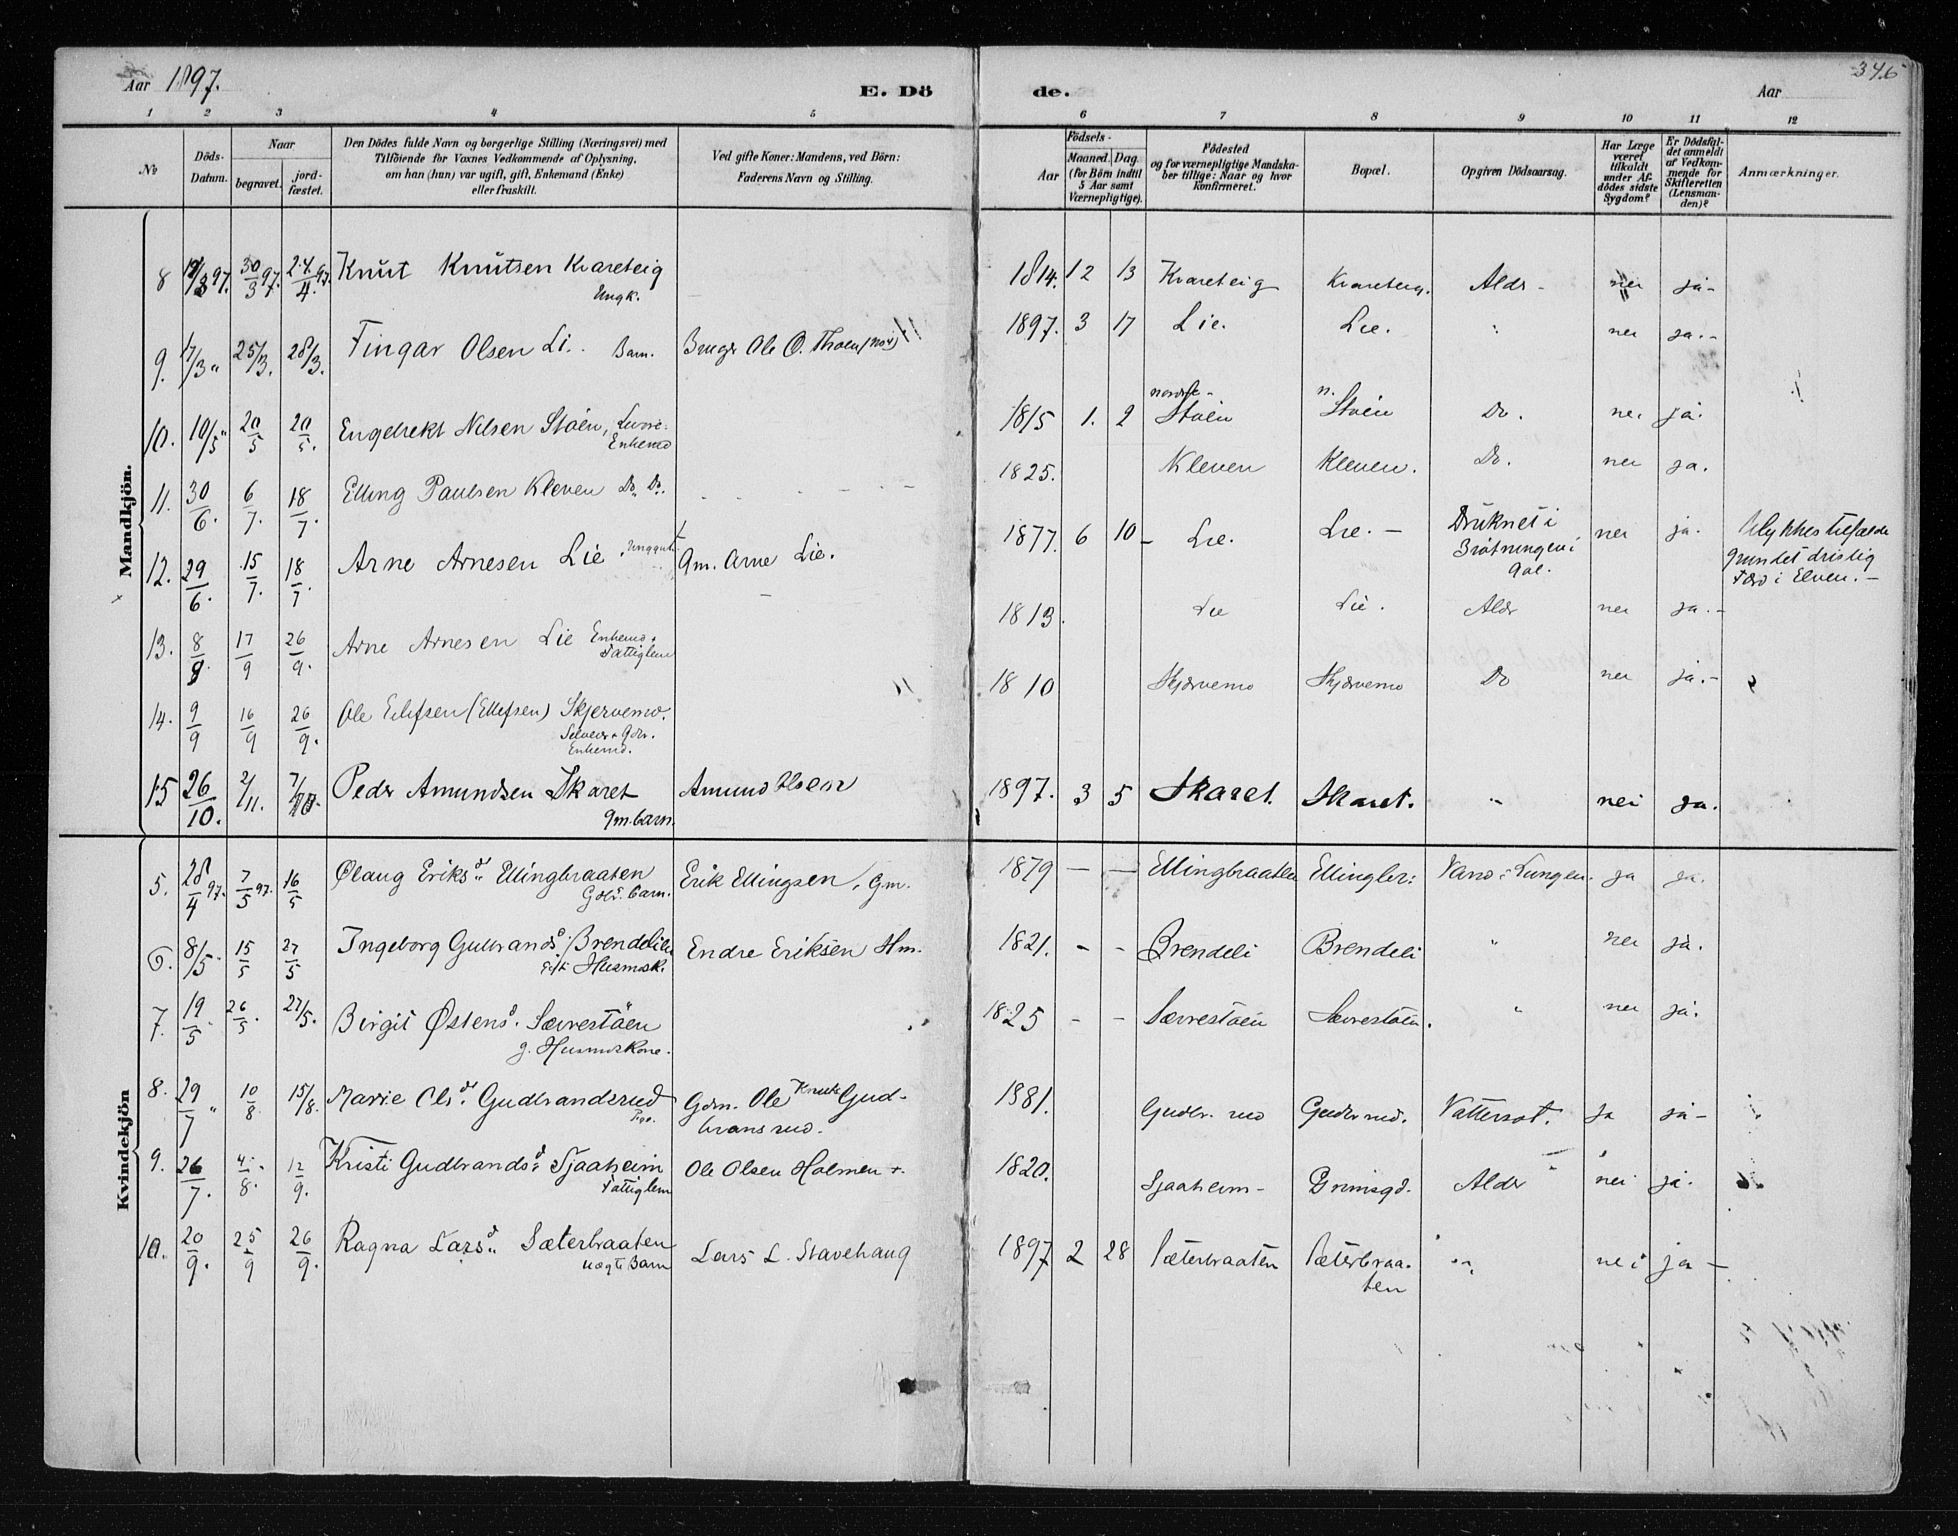 Aar 1897.
E. Dö
de.
Aar
346
1 2 3 4 5
6 7 8 9 10 11 12
No
Döds-
Datum.
Naar
begravet.
jord-
fæstet.
Den Dödes fulde Navn og borgerlige Stilling (Næringsvei) med
Tilföiende for Voxnes Vedkommende af Oplysning,
om han (hun) var ugift, gift, Enkemand (Enke)
eller fraskilt.
Ved gifte Koner: Mandens, ved Börn:
Faderens Navn og Stilling.
Födsels-
Aar
Maaned. Dag.
(for Börn indtil
5 Aar samt
Værnepligtige).
Födested
og for værnepligtige Mandska-
ber tillige: Naar og hvor
konfirmeret.
Bopæl.
Opgiven Dödsaarsag.
Har Læge
været
tilkaldt
under Af-
dödes sidste
Sygdom?
Er Dödsfal-
det anmeldt
af Vedkom-
mende for
Skifteretten
(Lensman-
den)?
Anmærkninger.
Mandkjön.
8 30/3 97. 24/4 97. Knut Knutsen Kvareteig
Ungk.
1814. 12 13 Kvareteig Kvareteig. Alds - nei ja-
9. 17/3 " 25/3. 28/3. Fingar Olsen Li. Barn. Bruger Ole O. Thoen
1897. 3 17 Lie. Lie. " nei ja.-
10. 10/5 " 20/5 20/5. Engebrekt Nilsen Stöen,
Enkemd
1815 1. 2 nordre- Stöen n. Stöen Do. nei ja.
11. 30/6. 6/7. 18/7. Elling Paulsen Kleven Do. Do.
1825. Kleven Kleven. Do. nei ja.
12. 29/6. 15/7. 18/7 Arne Arnesen Lie. Unggut Gm. Arne Lie.
1877. 6 10 Lie. Lie. - Druknet i
Brötningen i
Aal.
nei ja. Ulykkestilfælde
grundet dristig
Færd i Elven. -
13. 8/9. 17/9 26/9. Arne Arnesen Lie Enkemd.
Fattiglem
1813. Lie Lie. Alds nei ja.-
14. 9/9 16/9 26/9. Ole Eilefsen (Ellefsen) Skjervemo.
Enkemd.
1810 Skjærvemo Skjærvemo Do nei ja.-
15 26/10. 2/11. Peder Amundsen Skaret
Gm. barn.
Amund
1897. 3 5 Skaret. Skaret. " nei ja.
Kvindekjön
5. 28/4 97. 7/5 97. 16/5 Ølaug Eriksd. Ellingbraaten
Gdbr. barn.
Erik Ellingsen, Gm.
1879 — — Ellingbraaten Ellingbr: Vand i Lungen. ja ja.
6. 8/5 " 15/5 27/5 Ingeborg Gulbrandsd. Brendeli
gift Husmdsk.
Endre Eriksen Hm.
1821. - - Brendeli Brendeli " nei ja.
7. 19/5 " 26/5. 27/5. Birgit Østensd. Sævrestöen
g. Husmdskone.
1825 - - Sævrestöen Sævrestöen. " nei ja.
8. 29/7 " 10/8. 15/8. Marie Olsd. Gudbrandsrud
Pige.
Gdm. Ole Knuts Gud-
bransrud.
1881. Gudbr. rud Gudbrrud. Vattersot. ja ja-
9. 26/7. 4/8. 12/9. Kristi Gudbrandsd. Sjaaheim
Fattiglem
Ole Olsen Holmen +.
1820. Sjaaheim- Grimsgd. Alder nei ja.
10. 20/9. 25/9 26/9. Ragna Larsd. Sæterbraaten
uægt. Barn
Lars L. Stavehaug
1897 2 28 Sæterbraaten Sæterbraa-
ten
" nei ja -